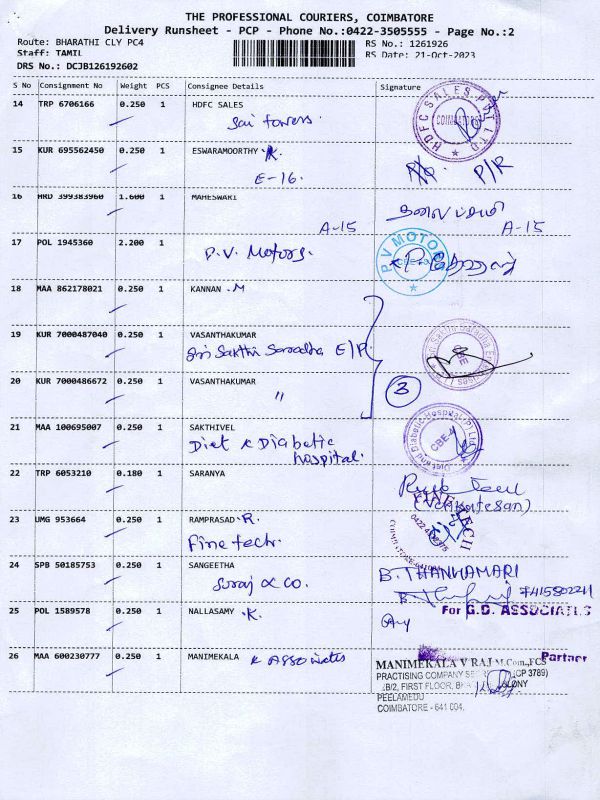 THE PROFESSIONAL COURIERS, COIMBATORE
Delivery Runsheet - PCP - Phone No.:0422-3505555 - Page No.:2
Route: BHARATHI CLY PC4 RS No.: 1261926
Staff: TAMIL RS Date: 21-Oct-2023
DRS No.: DCJB126192602
S No Consignment No Weight PCS Consignee Details Signature
14 TRP 6706166 0.250 1 HDFC SALES
Sai towers.
HDFC SALES PVT LTD
COIMBATORE
15 KUR 695562450 0.250 1 ESWARAMOORTHY K
E-16. P/R
16 HRD 399383960 1.600 1 MAHESWARI
A-15 A-15
17 POL 1945360 2.200 1
P.V. Motors.
P.V MOTORS
18 MAA 862178021 0.250 1 KANNAN .M
19 KUR 7000487040 0.250 1 VASANTHAKUMAR
Sri Sakthi Saradha E/P.
CBE
20 KUR 7000486672 0.250 1 VASANTHKUMAR
"
3
21 MAA 100695007 0.250 1 SAKTHIVEL
Diet & Diabetic
hospital.
Diet and Diabetic Hospital (P) Ltd
CBE-4
22 TRP 6053210 0.180 1 SARANYA
(Venkatesan)
23 UMG 953664 0.250 1 RAMPRASAD .R.
Fine tech.
FINE TECH
24 SPB 50185753 0.250 1 SANGEETHA
Suraj & Co.
B. THANHAMARI
7415802211
25 POL 1589578 0.250 1 NALLASAMY .K.
For G.D. ASSOCIATES
Partner
26 MAA 600230777 0.250 1 MANIMEKALA & Associates
MANIMEKALA V RAJ M.Com.,FCS
PRACTISING COMPANY (CP 3789)
B/2, FIRST FLOOR,
PEELAMEDU
COIMBATORE - 641 004.